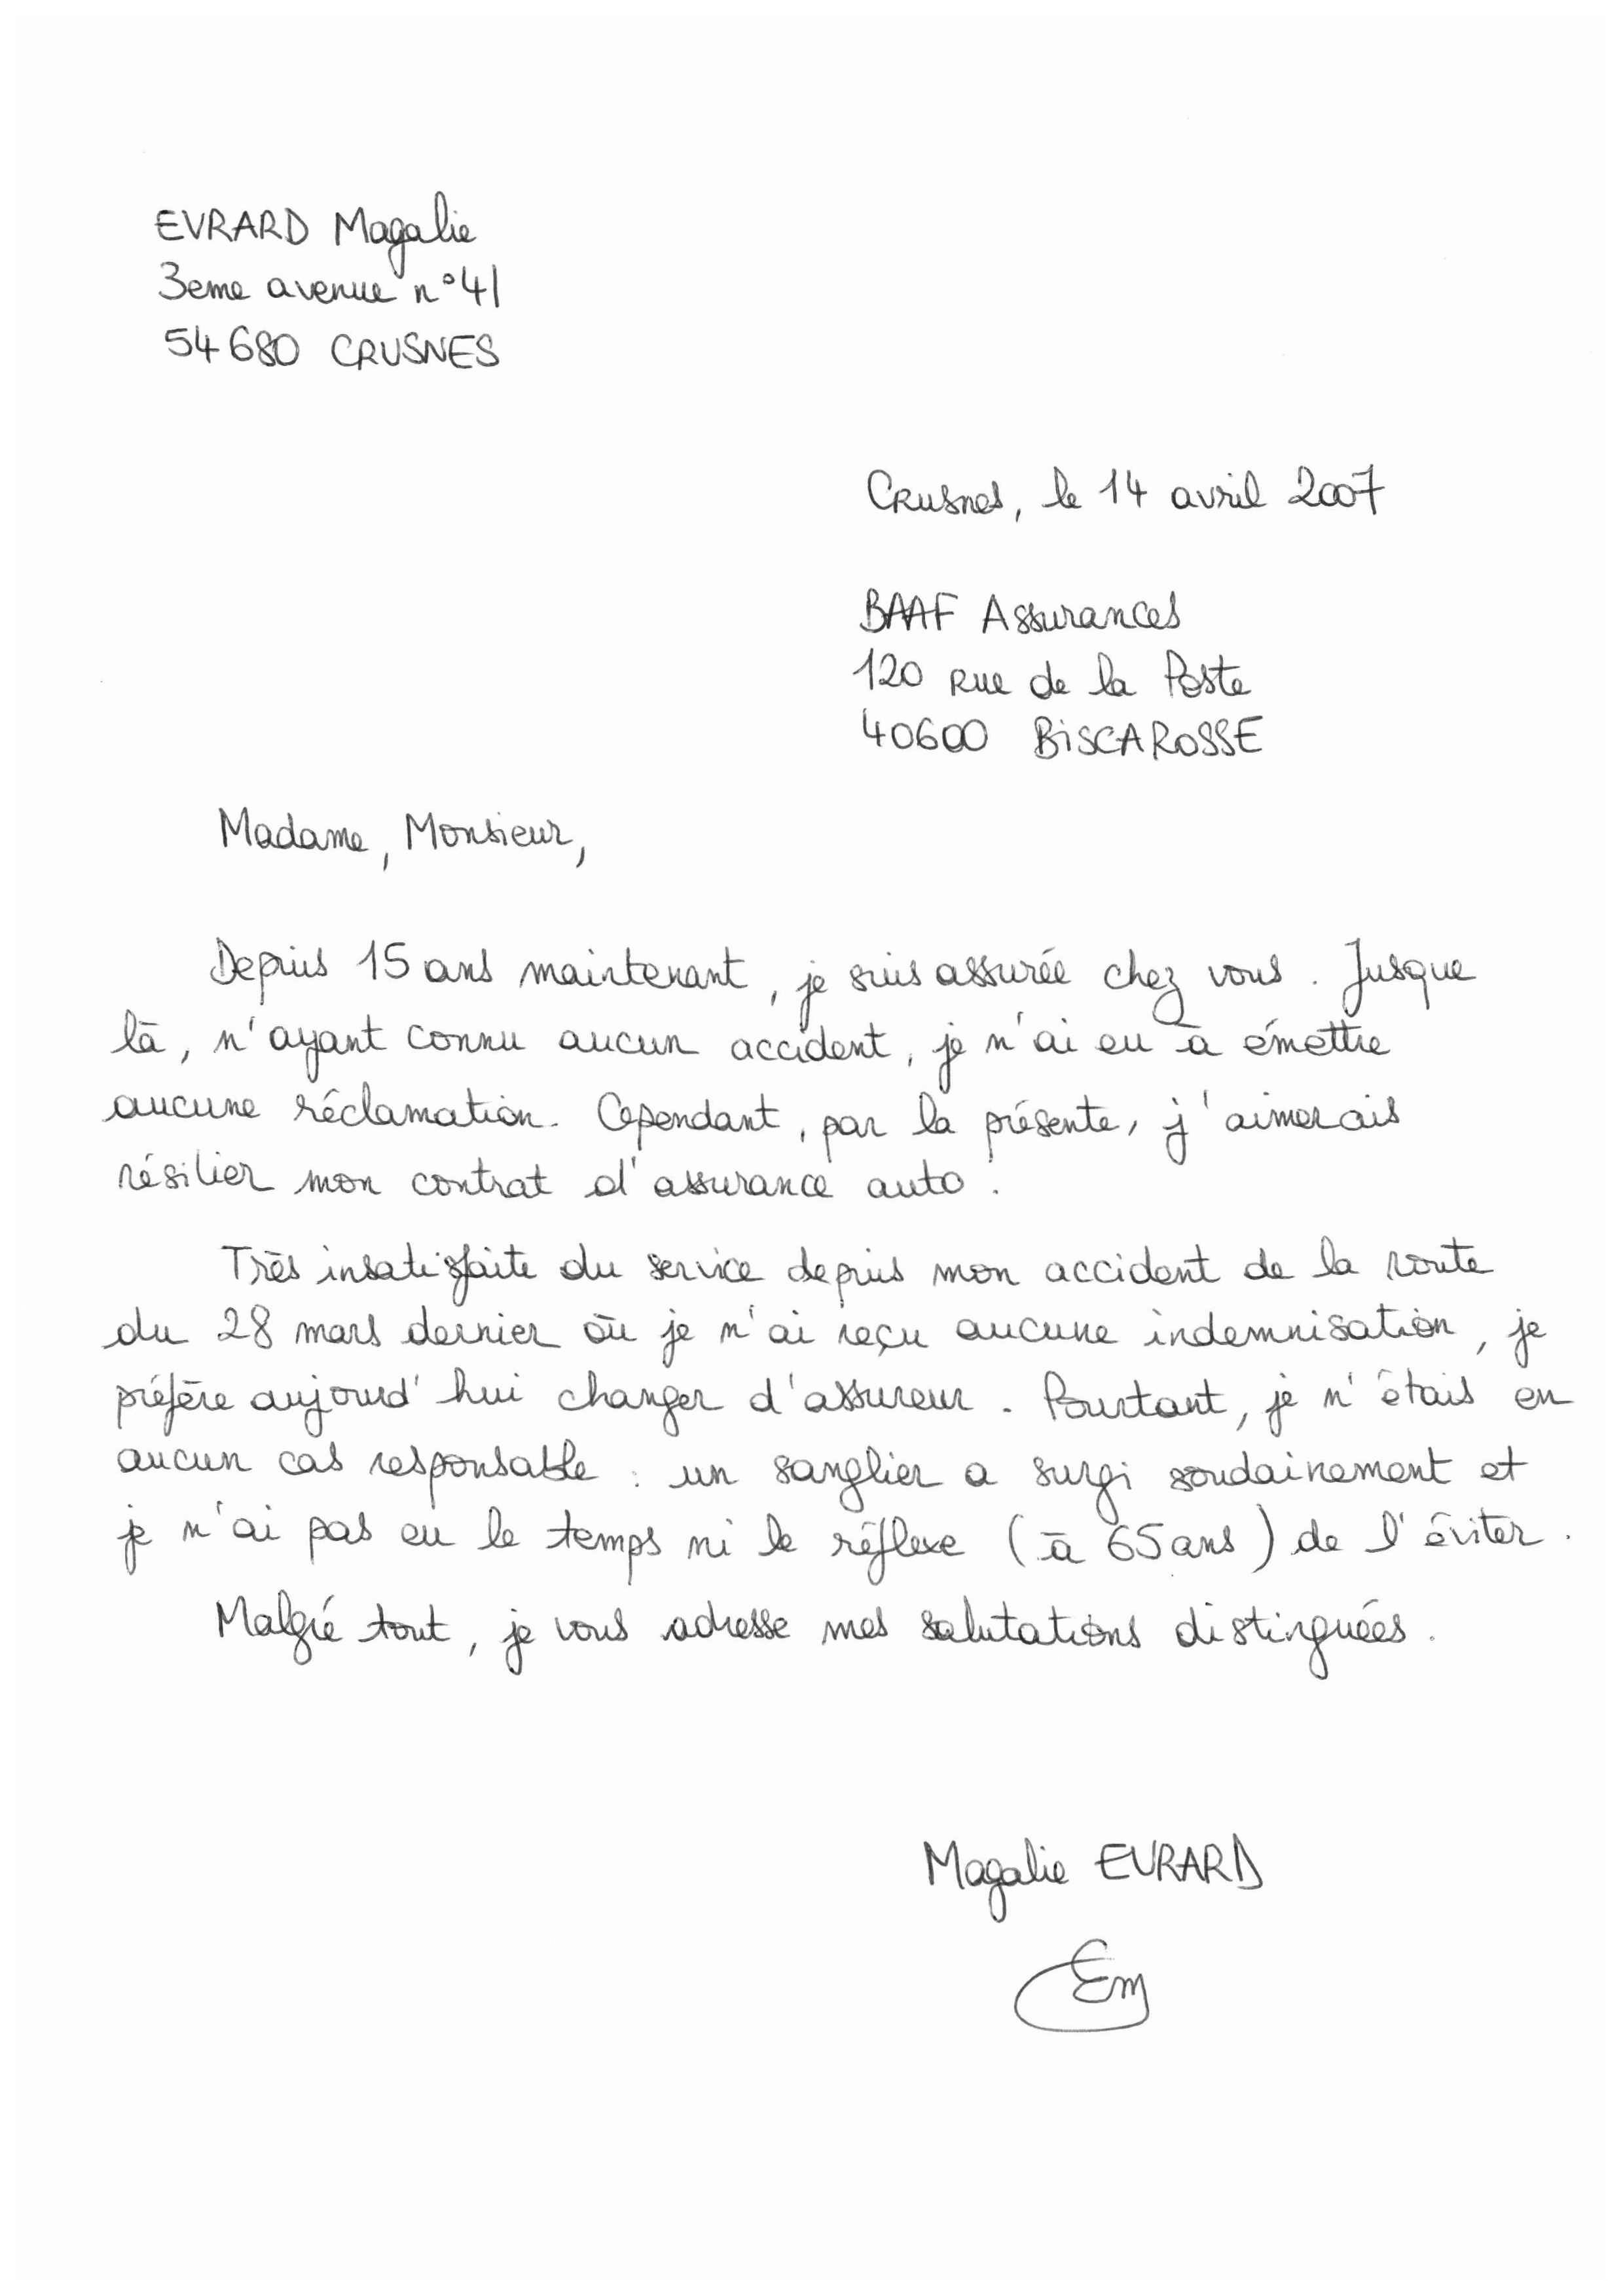 EVRARD Magalie
3eme avenue n°41
54680 CRUSNES
Crusnes, le 14 avril 2007
BAAF Assurances
120 rue de la Poste
40600 BiSCAROSSE
Madame, Monsieur,
Depuis 15 ans maintenant, je suis assurée chez vous. Jusque
là, n'ayant connu aucun accident, je n'ai eu à émettre
aucune réclamation. Cependant, par la présente, j'aimerais
résilier mon contrat d'assurance auto.
Très insatisfaite du service depuis mon accident de la route
du 28 mars dernier où je n'ai reçu aucune indemnisation, je
préfère aujourd'hui changer d'assureur. Pourtant, je n'étais en
aucun cas responsable : un sanglier a surgi soudainement et
je n'ai pas eu le temps ni le réflexe (à 65 ans) de l'éviter.
Malgré tout, je vous adresse mes salutations distinguées.
Magalie EVRARD
Em